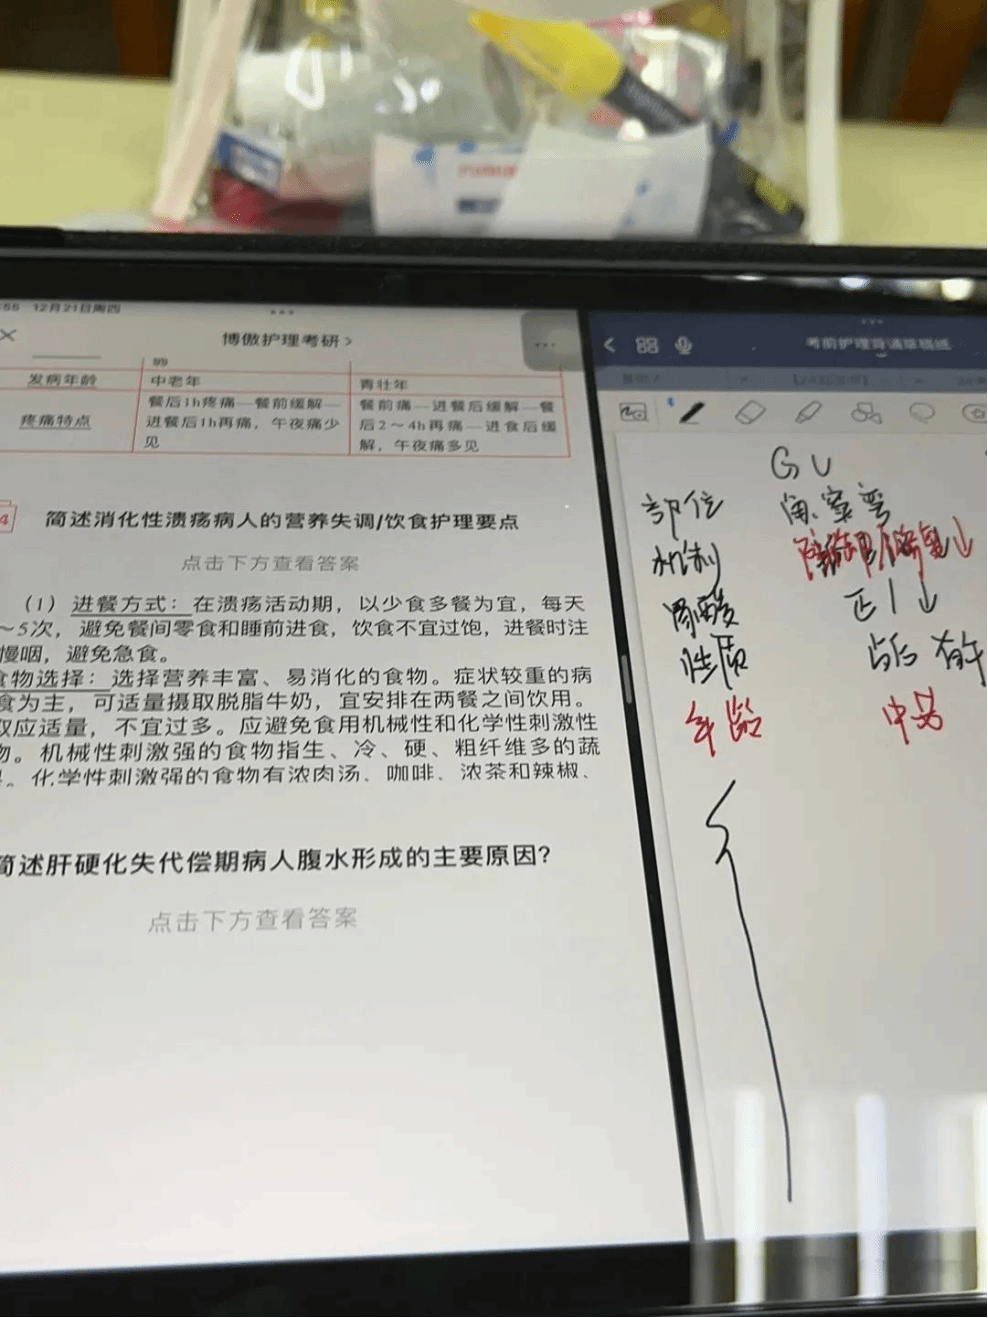 :55 12月21日周四
博傲护理考研>
发病年龄 中老年 青壮年
疼痛特点
餐后1h疼痛—餐前缓解—
进餐后1h再痛，午夜痛少
见
餐前痛—进餐后缓解—餐
后2～4h再痛—进食后缓
解，午夜痛多见
4 简述消化性溃疡病人的营养失调/饮食护理要点
点击下方查看答案
(1) 进餐方式：在溃疡活动期，以少食多餐为宜，每天
～5次，避免餐间零食和睡前进食，饮食不宜过饱，进餐时注
慢咽，避免急食。
食物选择：选择营养丰富、易消化的食物。症状较重的病
食为主，可适量摄取脱脂牛奶，宜安排在两餐之间饮用。
取应适量，不宜过多。应避免食用机械性和化学性刺激性
物。机械性刺激强的食物指生、冷、硬、粗纤维多的蔬
。化学性刺激强的食物有浓肉汤、咖啡、浓茶和辣椒、
简述肝硬化失代偿期病人腹水形成的主要原因？
点击下方查看答案
考前护理背诵草稿纸
GU
部位 角.窦.弯
机制
胃酸 正/↓
性质
年龄 中老